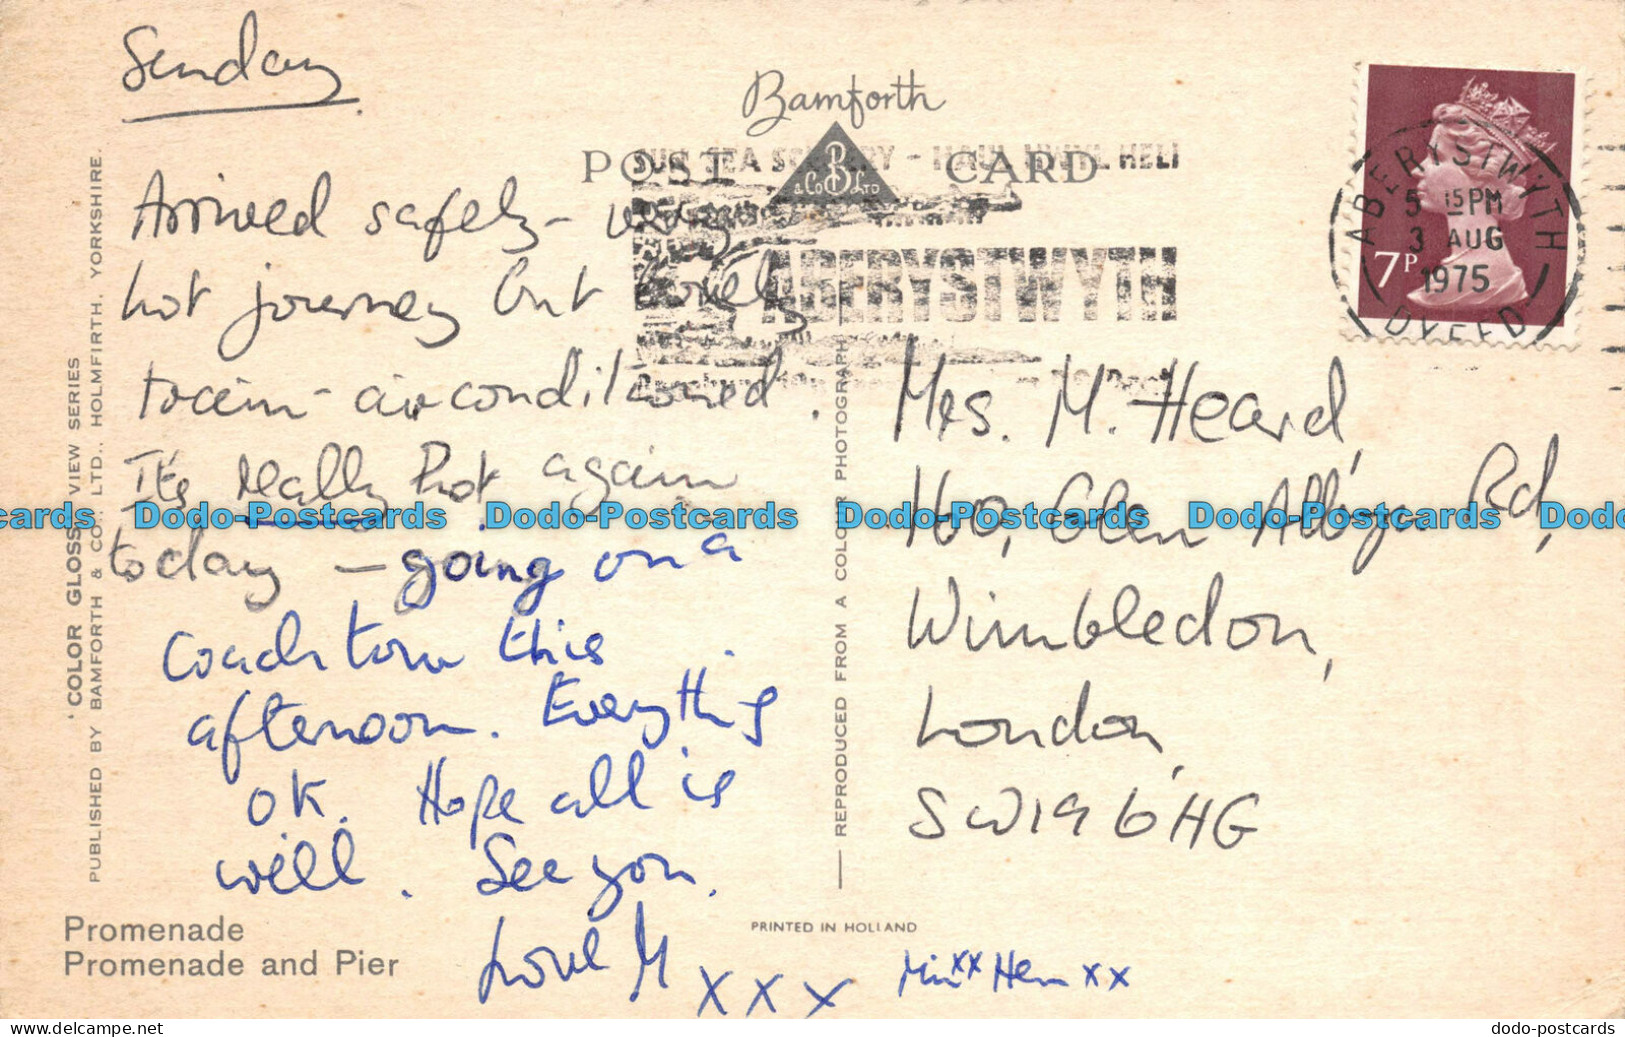 Sunday
Arrived safely - very
hot journey but lovely
train - airconditioned.
It's really hot again
today - going on a
coach tour this
afternoon. Everything
OK. Hope all is
well. See you.
Love M
x x x
xx xx
Bamforth
POST CARD
B
& Co LTD
SUN SEA SCENERY - HAUL HWYL HELI
ABERYSTWYTH
ABERYSTWYTH
5 15PM
3 AUG
1975
DYFED
7P
Mrs. M. Heard,
160, Glen Albyn Rd,
Wimbledon,
London,
SW19 6HG
'COLOR GLOSS' VIEW SERIES
PUBLISHED BY BAMFORTH & CO., LTD., HOLMFIRTH, YORKSHIRE.
REPRODUCED FROM A COLOR PHOTOGRAPH
Promenade
Promenade and Pier
PRINTED IN HOLLAND
cards Dodo-Postcards Dodo-Postcards Dodo-Postcards Dodo-Postcards Dodo
www.delcampe.net
dodo-postcards